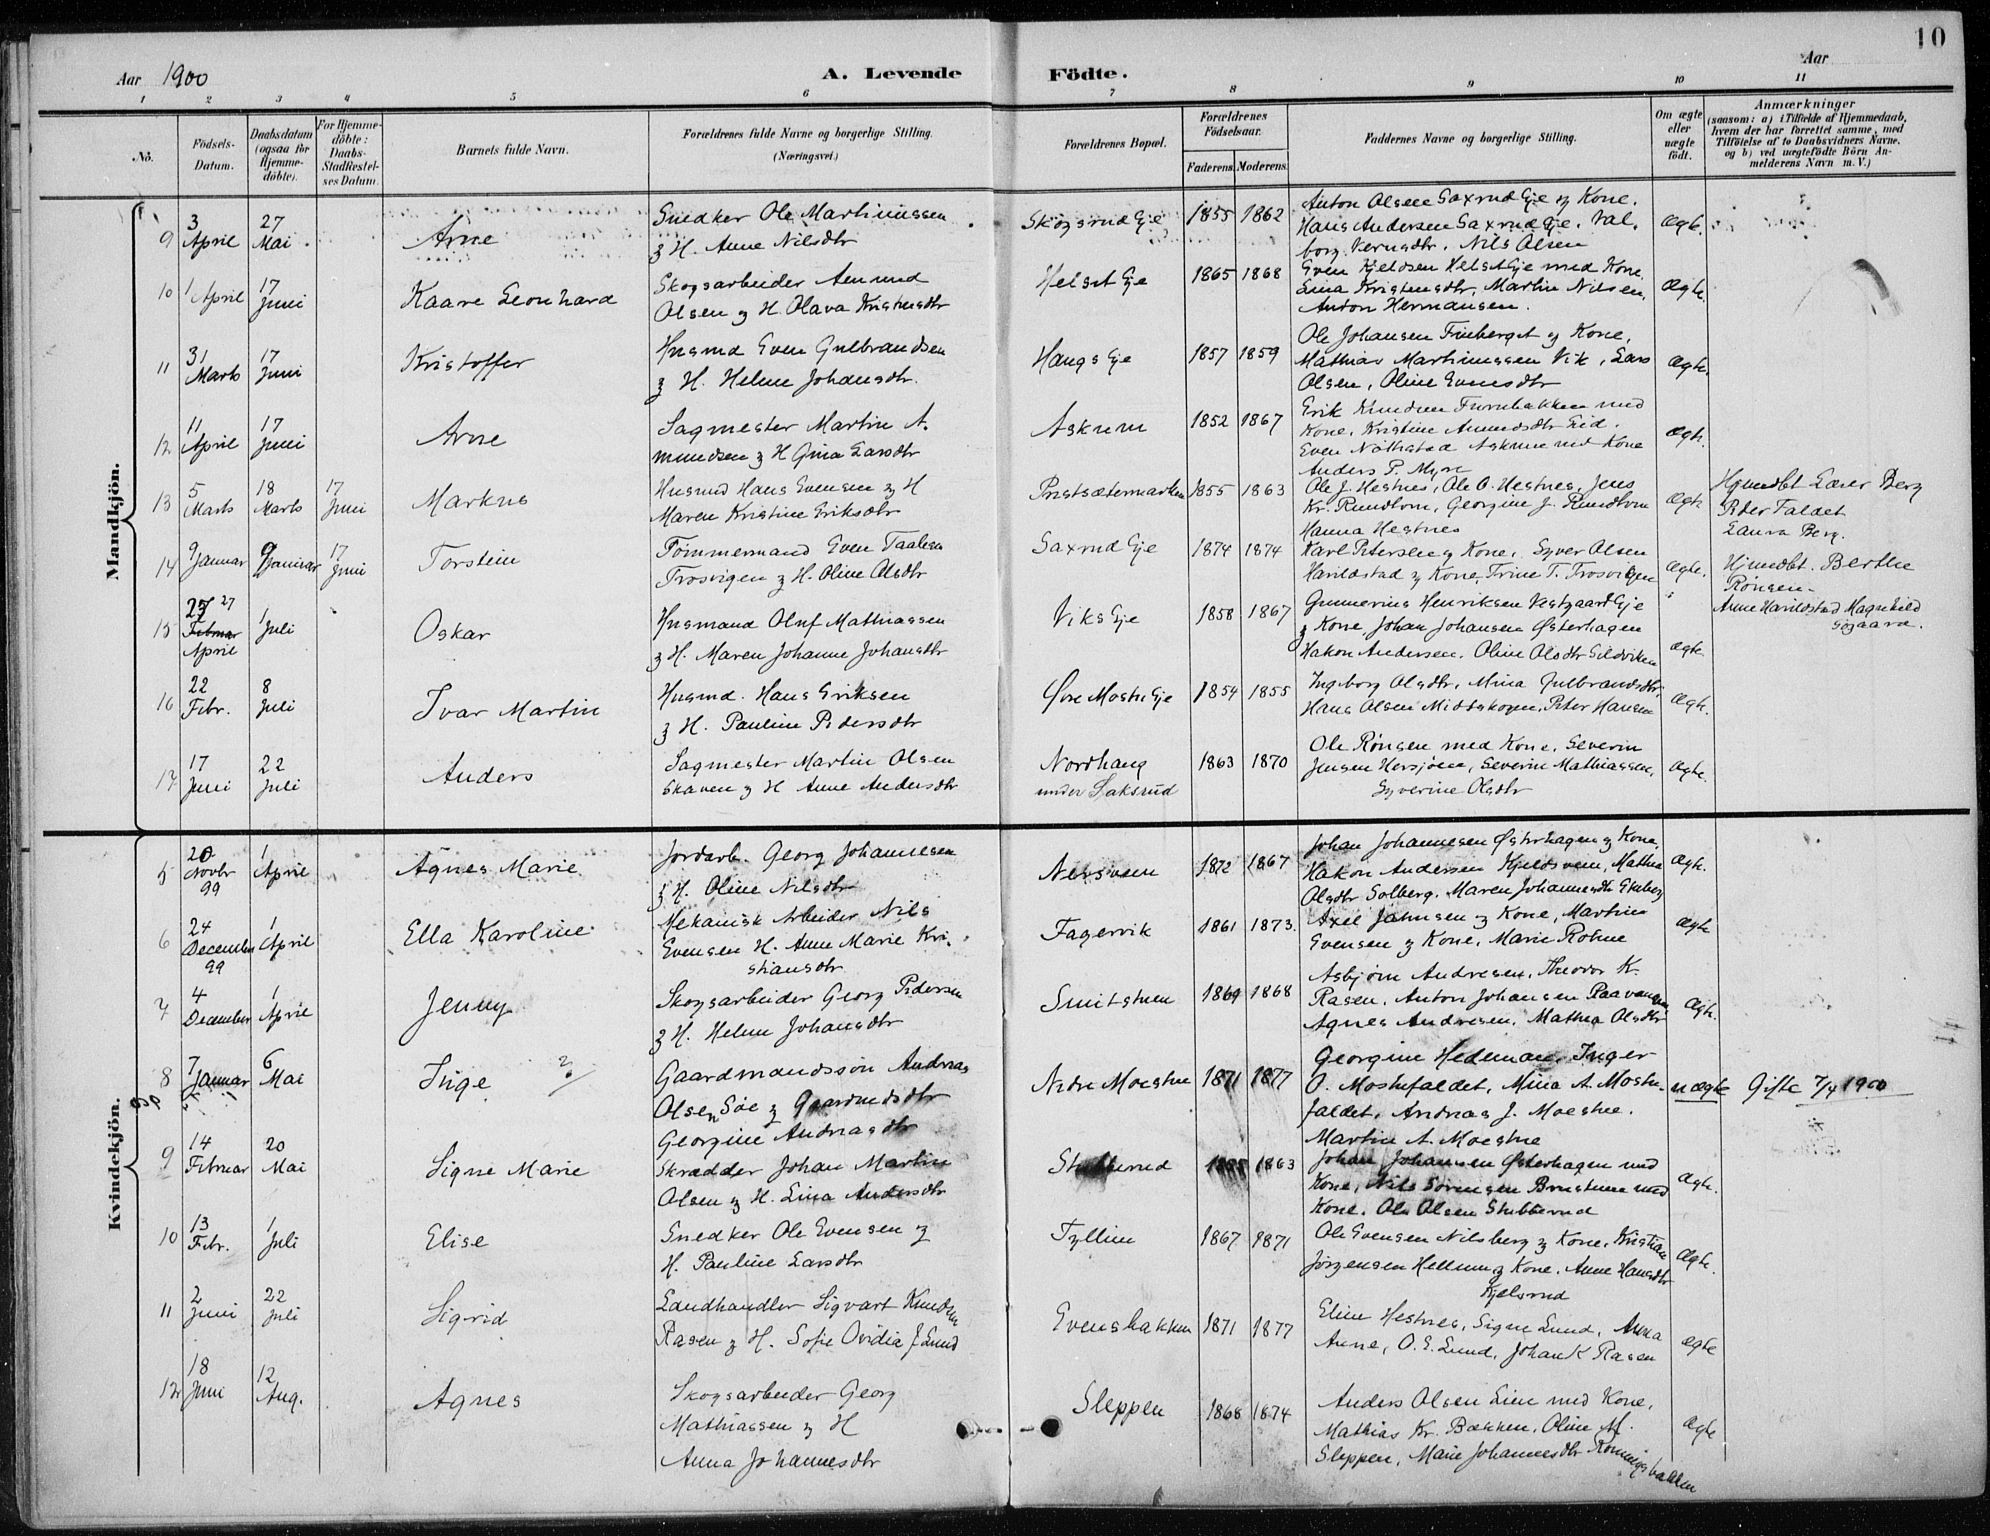 10
Aar 1900
A. Levende Födte.
Aar
1 2 3 4 5 6 7 8 9 10 11
No.
Födsels-Datum.
Daabsdatum (ogsaa for Hjemme-döbte).
For Hjemme-döbte: Daabs-Stadfæstel-ses Datum.
Barnets fulde Navn.
Forældrenes fulde Navne og borgerlige Stilling. (Næringsvei.)
Forældrenes Bopæl.
Forældrenes Födselsaar.
Faderens. Moderens.
Faddernes Navne og borgerlige Stilling.
Om ægte eller uægte födt.
Anmærkninger
(saasom: a) i Tilfælde af Hjemmedaab,
hvem der har forrettet samme, med
Tilföielse af to Daabsvidners Navne,
og b) ved uægtefödte Börn An-
melderens Navn m. V.)
Mandkjön.
9 3 April 27 Mai Arne
Snedker Ole Martinussen
& H. Anne Nilsdtr
Skógsrud Eje 1855 1862
Anton Olsen Saxrud Eje og Kone.
Hans Andersen Saxrud Eje. Val-
borg. . Nils Olsen
Ægte.
10 1 April 17 Juni Kaare Leonhard
Skogsarbeider Amund
Olsen og H. Olava Kristensdtr
Helset Eje 1865 1868
Even Kjeldsen Helset Eje med Kone.
Lina Kristensdtr, Martin Nilsen,
Anton Hermansen.
Ægte.
11 31 Marts 17 Juni Kristoffer
Husmd Even Gulbrandsen
& H. Helene Johansdtr.
Haugs Eje 1857 1859
Ole Johansen Fineberget og Kone,
Mathias Martinussen Vik, Lars
Olsen, Oline Evensdtr
Ægte.
12 11 April 17 Juni Arne
Sagmester Martin A-
mundsen & H Gina Larsdtr
Askrum 1852 1867
Erik Knudsen Furubakken med
Kone, Kristine Amundsdtr Eid.
Even Askrum med Kone
Anders P. Myre
Ægte.
13 5 Marts 18 Marts 17 Juni Markus
Husmd Hans Evensen & H
Maren Kristine Eriksdtr
Prestsætermarken 1855 1863
Ole J. Hestnes, Ole O. Hestnes, Jens
Kr. Rundtom, Georgine J. Rundtom
Hanna Hestnes
Ægte
Hjemdbt Lærer Berg
Peder Faldet
Laura Berg.
14 9 Januar 9 Januar 17 Juni Torstein
Tømmermand Even Taalesen
Trosvigen & H. Oline Olsdtr
Saxrud Eje 1874 1874
Karl Petersen og Kone, Syver Olsen
Harildstad & Kone, Trine T. Trosvigen
Ægte.
Hjemdbt. Berthe
Rønsen.
Anne Harildstad Magnhild
15 27 Februar April 1 Juli Oskar
Husmand Oluf Mathiassen
& H. Maren Johanne Johansdtr
Viks Eje 1858 1867
Gunnerius Henriksen Vestgaard Eje
& Kone Johan Johansen Østerhagen
Hakon Andersen. Oline Olsdtr Sildviken
Ægte.
16 22 Febr. 8 Juli Ivar Martin
Husmd. Hans Eriksen
& H. Pauline Pedersdtr
Øvre Mostu Eje 1854 1855
Ingeborg Olsdtr, Mina Gulbrandsdtr,
Hans Olsen Midtskogen, Peter Hansen
Ægte.
17 17 Juni 22 Juli Anders
Sagmester Martin Olsen
Skaven & H Anne Andersdtr
Nordhaug
under Saksrud 1863 1870
Ole Rønsen med Kone, Severin
Jensen Hersjøen, Severin Mathiassen,
Syverine Olsdtr
Ægte.
Kvindekjön.
5 20 Novbr 99 1 April Agnes Marie
Jordarb. Georg Johannesen
& H. Oline Nilsdtr
1872 1867
Johan Johannesen Østerhagen & Kone,
Hakon Andersen Kjeldsveen, Mathea
Olsdtr Solberg. Maren Johannesdtr
Ægte.
6 24 December 99 1 April Ella Karoline
Mekanisk Arbeider Nils
Evensen H. Anne Marie Kri-
stiansdtr
Fagervik 1861 1873.
Axel Jahnsen & Kone, Martin
Evensen & Kone, Marie Rohne
Ægte
7 4 December 1 April Jenny.
Skogsarbeider Georg Pedersen
& H. Helene Johansdtr
Smitstuen 1869 1868
Asbjørn Andresen, Theodor K.
Rasen, Anton Johansen
Agnes Andresen, Mathea Olsdtr
Ægte.
8 7 Januar 6 Mai Inge
Gaardmandssøn Andreas
Olsen Söe & Gaardmdsdtr
Georgine Andreasdtr
Nedre Moestue 1871 1877
Georgine Hedeman, Inger
O. Mostufaldet, Mina A. Mostu-
faldet, Andreas J. Moestue.
Martin A. Moestue
uægte
Gifte 7/4 1900
9 14 Februar 20 Mai Signe Marie
Skrædder Johan Martin
Olsen & H. Lina Andersdtr
Stubberud 1863
Johan Johansen Østerhagen med
Kone, Nils Sörensen med
Kone. Ole Olsen Stubberud
Ægte.
10 13 Febr. 1 Juli Elise
Snedker Ole Evensen &
H. Pauline Larsdtr
Tyllien 1867 1871
Ole Evensen Nilsberg & Kone, Kristian
Jørgensen Hellum & Kone. Anne Hansdtr
Kjelsrud
Ægte.
11 2 Juni 22 Juli Sigrid
Landhandler Sigvart Knudsen
Rasen & H. Sofie Ovidie J. Lund
Evensbakken 1871 1877
Eline Hestnes, Signe Lund, Anna
Aune, O. E. Lund, Johan K Rasen
Ægte
12 18 Juni 12 Aug. Agnes
Skogsarbeider Georg
Mathiassen & H
Anna Johannesdtr
Sleppen 1868 1874
Anders Olsen Lien med Kone,
Mathias Kr. Bækken, Oline M.
Sleppen, Marie Johannesdtr
Ægte